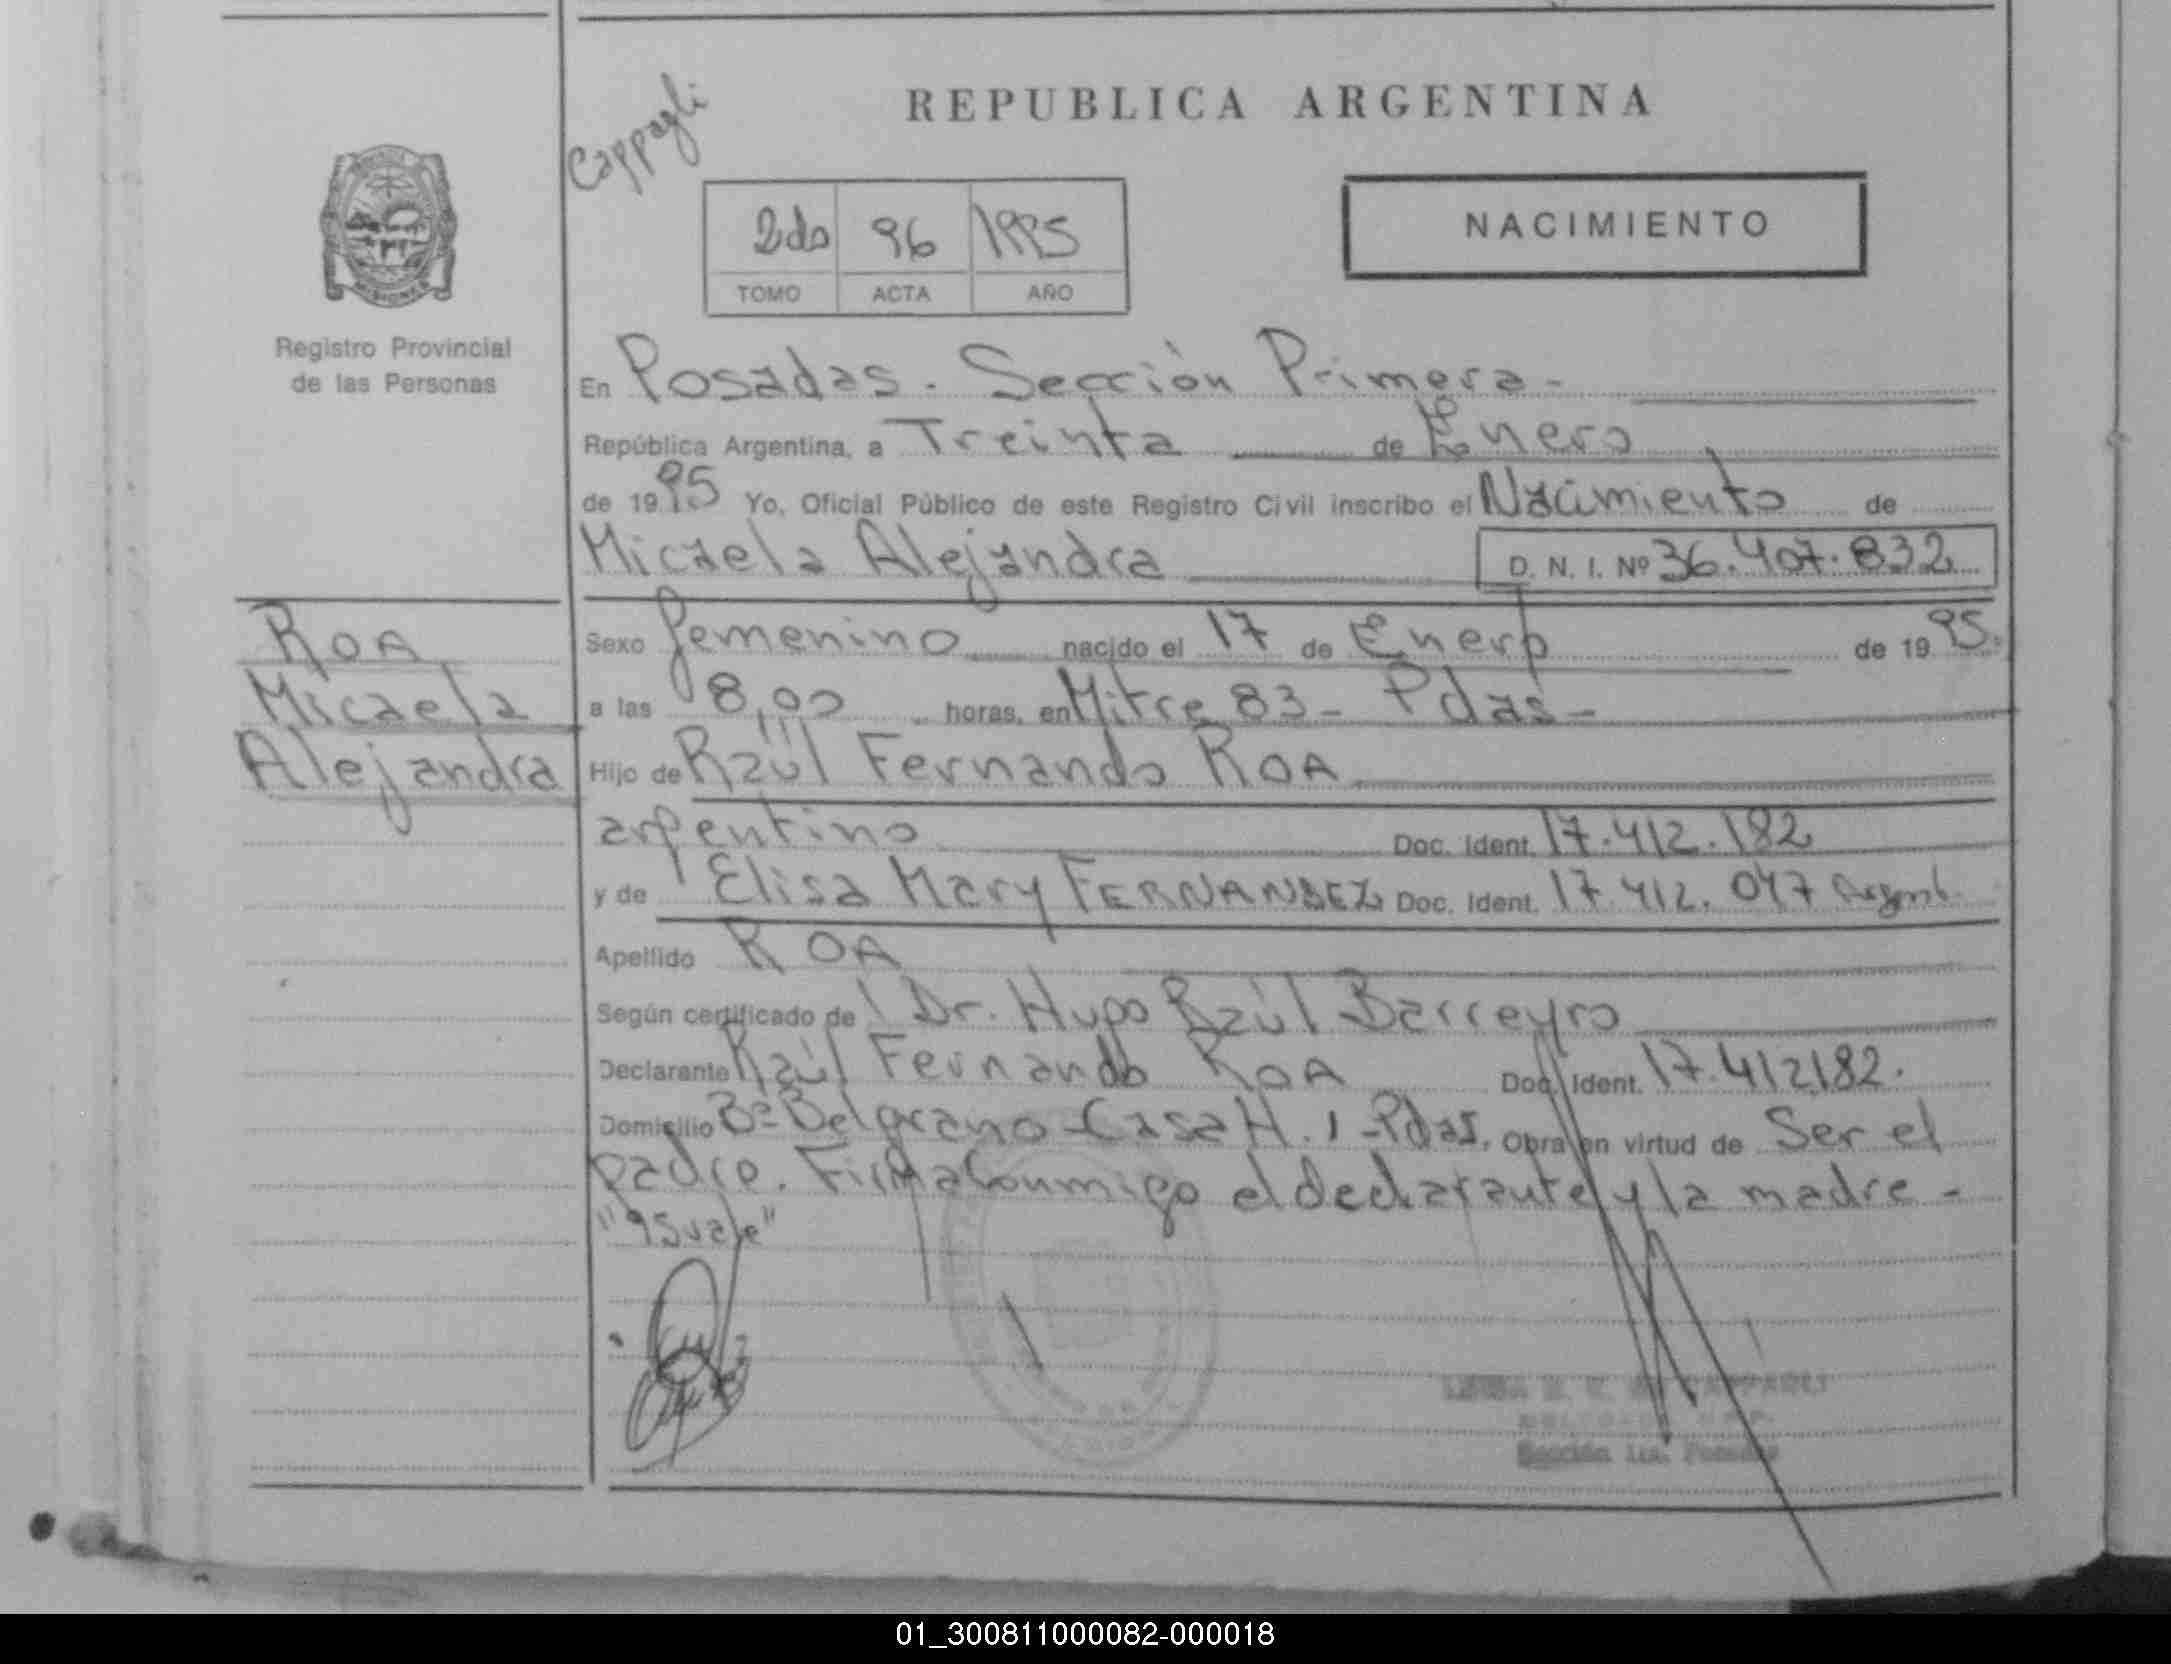 Cappagli
REPUBLICA ARGENTINA
NACIMIENTO
2do 96 1995
TOMO ACTA AÑO
MISIONES
Registro Provincial
de las Personas
En Posadas. Sección Primera-
República Argentina, a Treinta de Enero
de 1995 Yo, Oficial Público de este Registro Civil inscribo el Nacimiento de
Micaela Alejandra D. N. I. Nº 36.407.832
Roa
Micaela
Alejandra
Sexo femenino nacido el 17 de Enero de 1995.
a las 8,00 horas, en Mitre 83- Pdas-
Hijo de Raúl Fernando ROA
argentino Doc. Ident. 17.412.182
y de Elisa Mary FERNANDEZ Doc. Ident. 17.412.047 Argent.
Apellido ROA
Según certificado de Dr. Hugo Raúl Barreyro
Declarante Raúl Fernando ROA Doc. Ident. 17.412182.
Domicilio Bº Belgrano-Casa H.1-Pdas. Obra en virtud de Ser el
padre. Firma Conmigo el declarante y la madre-
"95 vale"
CAPPAGLI
Sección 1ra. Posadas
01_300811000082-000018